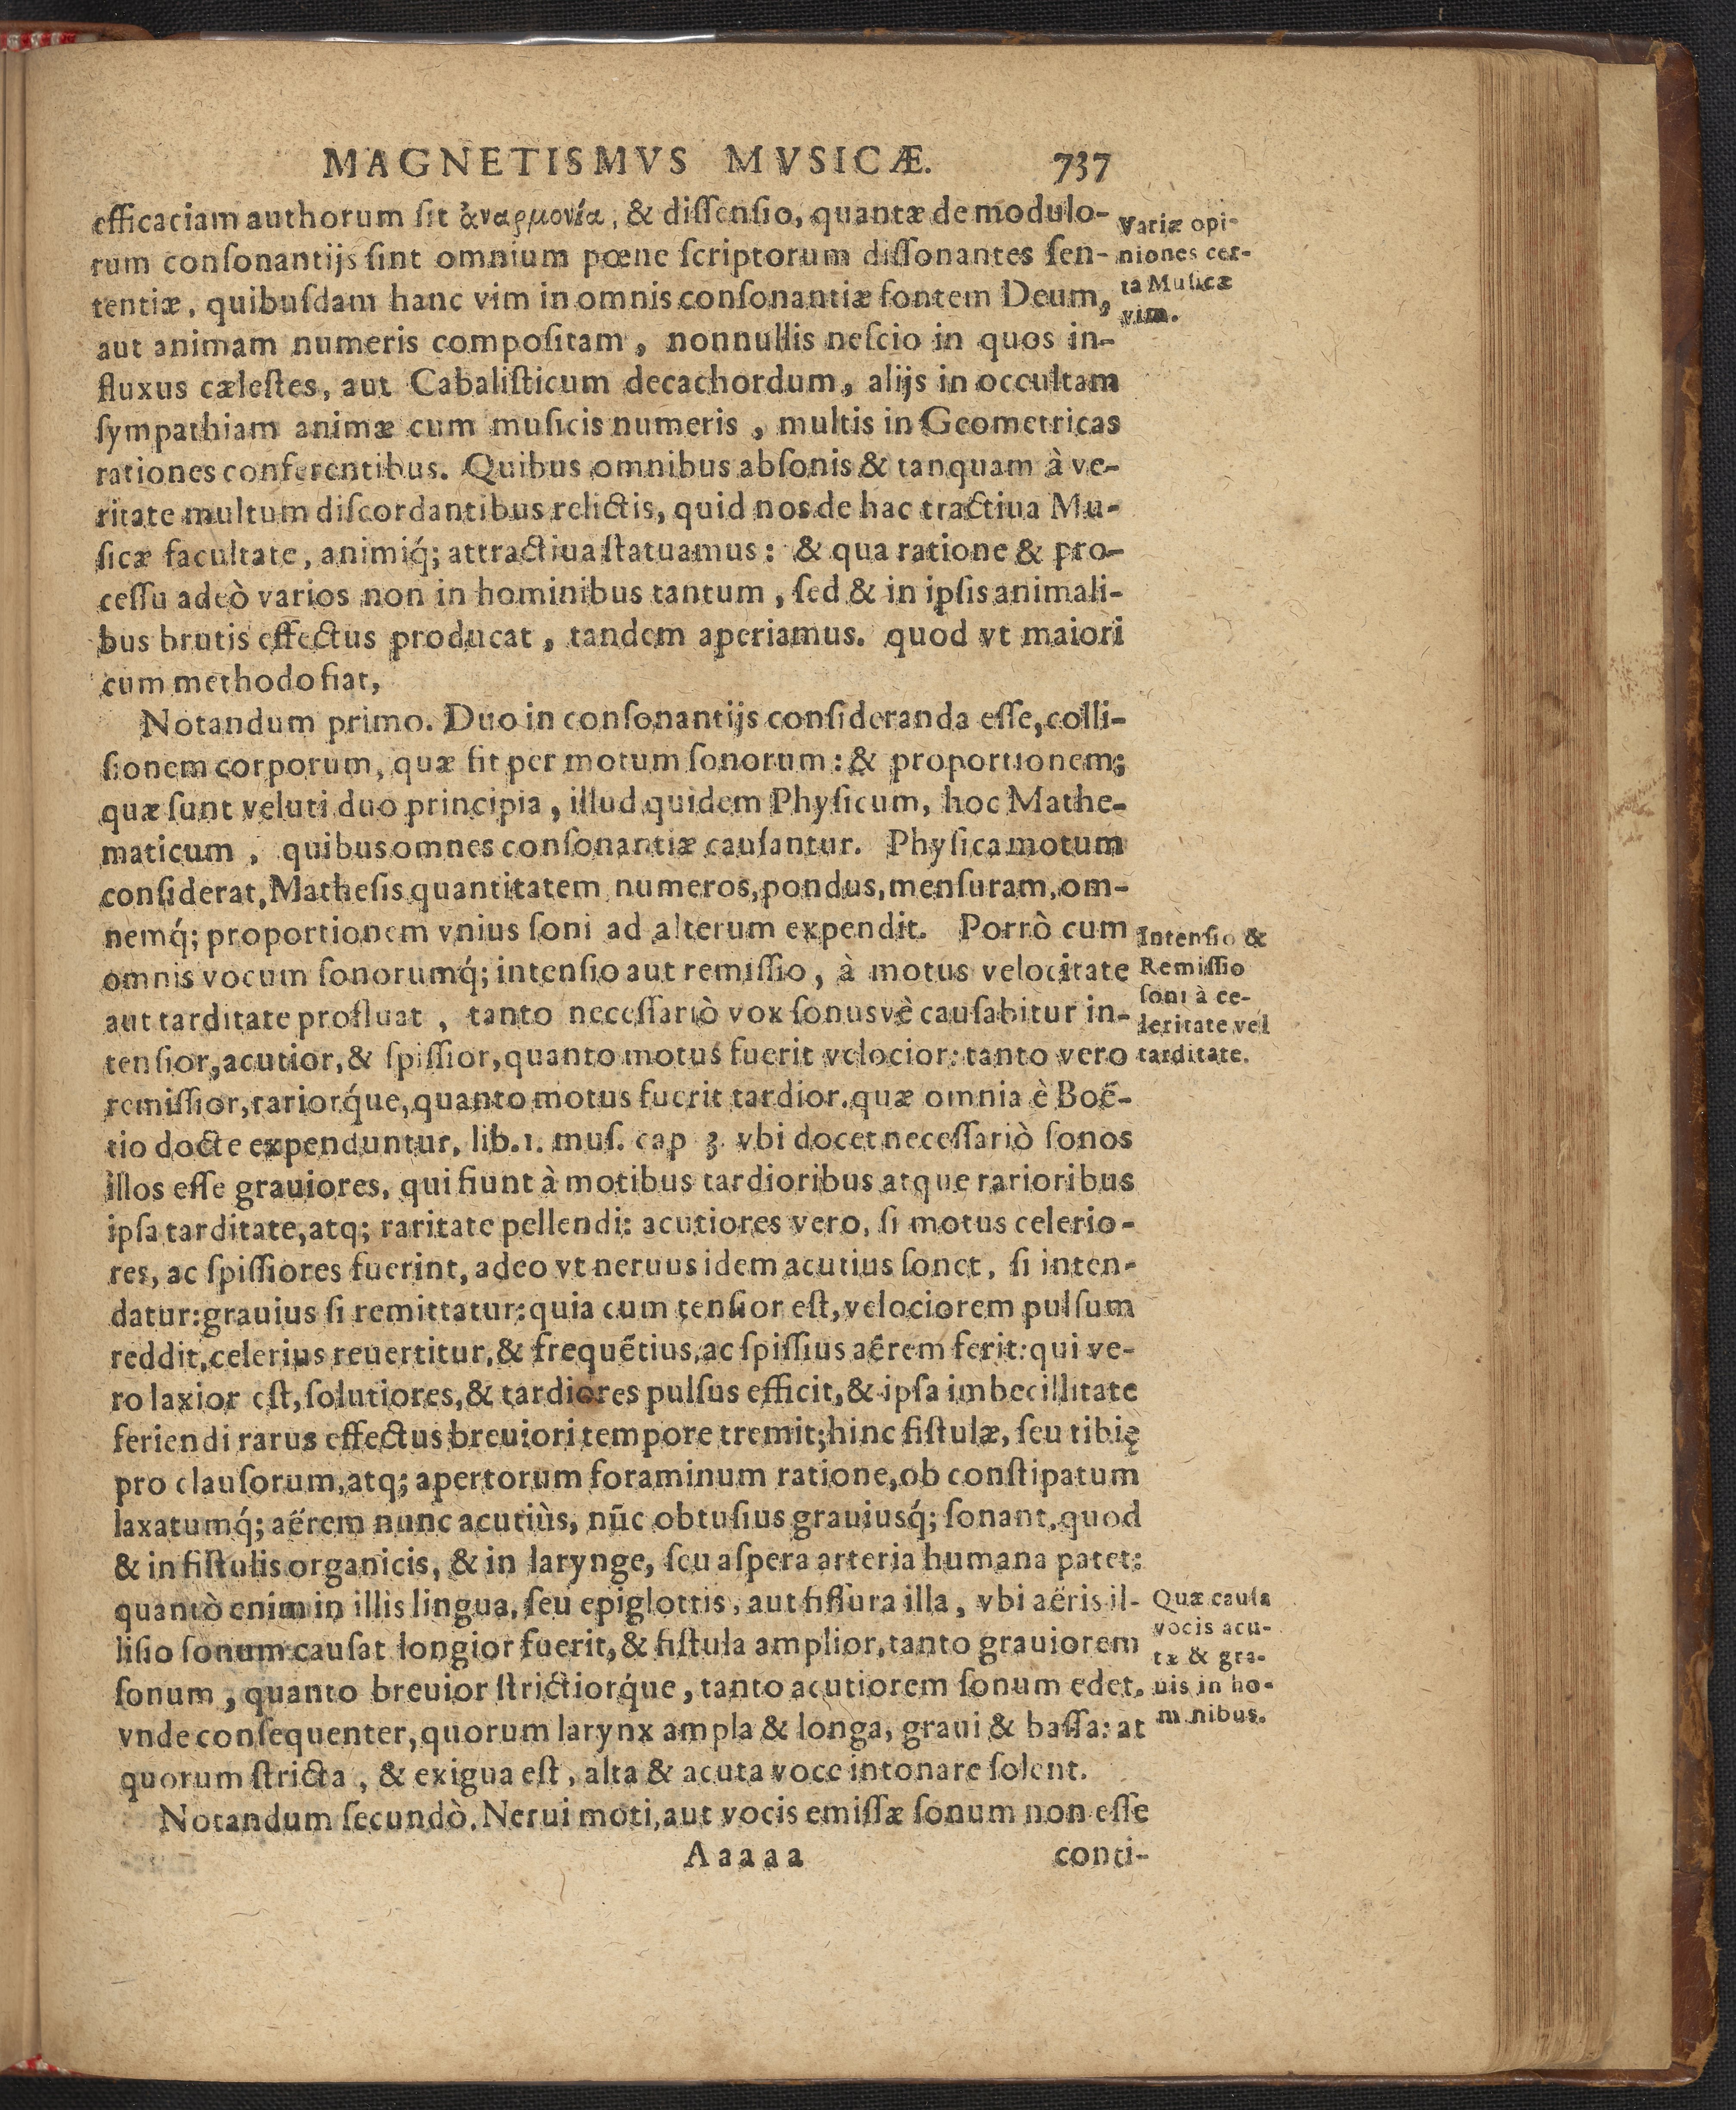 MAGNETISMVS MVSICÆ. 737
efficaciam authorum sit ἀναρμονία, & dissensio, quantæ de modulo-
rum consonantijs sint omnium pœne scriptorum dissonantes sen-
tentiæ, quibusdam hanc vim in omnis consonantiæ fontem Deum,
aut animam numeris compositam, nonnullis nescio in quos in-
fluxus cælestes, aut Cabalisticum decachordum, alijs in occultam
sympathiam animæ cum musicis numeris, multis in Geometricas
rationes conferentibus. Quibus omnibus absonis & tanquam à ve-
ritate multum discordantibus relictis, quid nos de hac tractiua Mu-
sicæ facultate, animiq́; attractiua statuamus: & qua ratione & pro-
cessu adeò varios non in hominibus tantum, sed & in ipsis animali-
bus brutis effectus producat, tandem aperiamus. quod vt maiori
cum methodo fiat,
Variæ opi-
niones cer-
ta Musicæ
vim.
Notandum primo. Duo in consonantijs consideranda esse, colli-
sionem corporum, quæ fit per motum sonorum: & proportionem;
quæ sunt veluti duo principia, illud quidem Physicum, hoc Mathe-
maticum, quibus omnes consonantiæ causantur. Physica motum
considerat, Mathesis quantitatem numeros, pondus, mensuram, om-
nemq́; proportionem vnius soni ad alterum expendit. Porrò cum
omnis vocum sonorumq́; intensio aut remissio, à motus velocitate
aut tarditate profluat, tanto necessariò vox sonusvè causabitur in-
tensior, acutior, & spissior, quanto motus fuerit velocior: tanto vero
remissior, rariorq́ue, quanto motus fuerit tardior. quæ omnia è Boë-
tio docte expenduntur, lib. 1. mus. cap 3. vbi docet necessariò sonos
illos esse grauiores, qui fiunt à motibus tardioribus atque rarioribus
ipsa tarditate, atq; raritate pellendi: acutiores vero, si motus celerio-
res, ac spissiores fuerint, adeo vt neruus idem acutius sonet, si inten-
datur: grauius si remittatur: quia cum tensior est, velociorem pulsum
reddit, celerius reuertitur, & frequẽtius, ac spissius aërem ferit: qui ve-
ro laxior est, solutiores, & tardiores pulsus efficit, & ipsa imbecillitate
feriendi rarus effectus breuiori tempore tremit; hinc fistulæ, seu tibię
pro clausorum, atq; apertorum foraminum ratione, ob constipatum
laxatumq́; aërem nunc acutiùs, nũc obtusius grauiusq́; sonant. quod
& in fistulis organicis, & in larynge, seu aspera arteria humana patet:
quantò enim in illis lingua, seu epiglottis, aut fissura illa, vbi aëris il-
lisio sonum causat longior fuerit, & fistula amplior, tanto grauiorem
sonum, quanto breuior strictiorq́ue, tanto acutiorem sonum edet.
vnde consequenter, quorum larynx ampla & longa, graui & bassa: at
quorum stricta, & exigua est, alta & acuta voce intonare solent.
Intensio &
Remissio
soni à ce-
leritate vel
tarditate.
Quæ causa
vocis acu-
tæ & gra-
uis in ho-
minibus.
Notandum secundò. Nerui moti, aut vocis emissæ sonum non esse
Aaaaa conti-